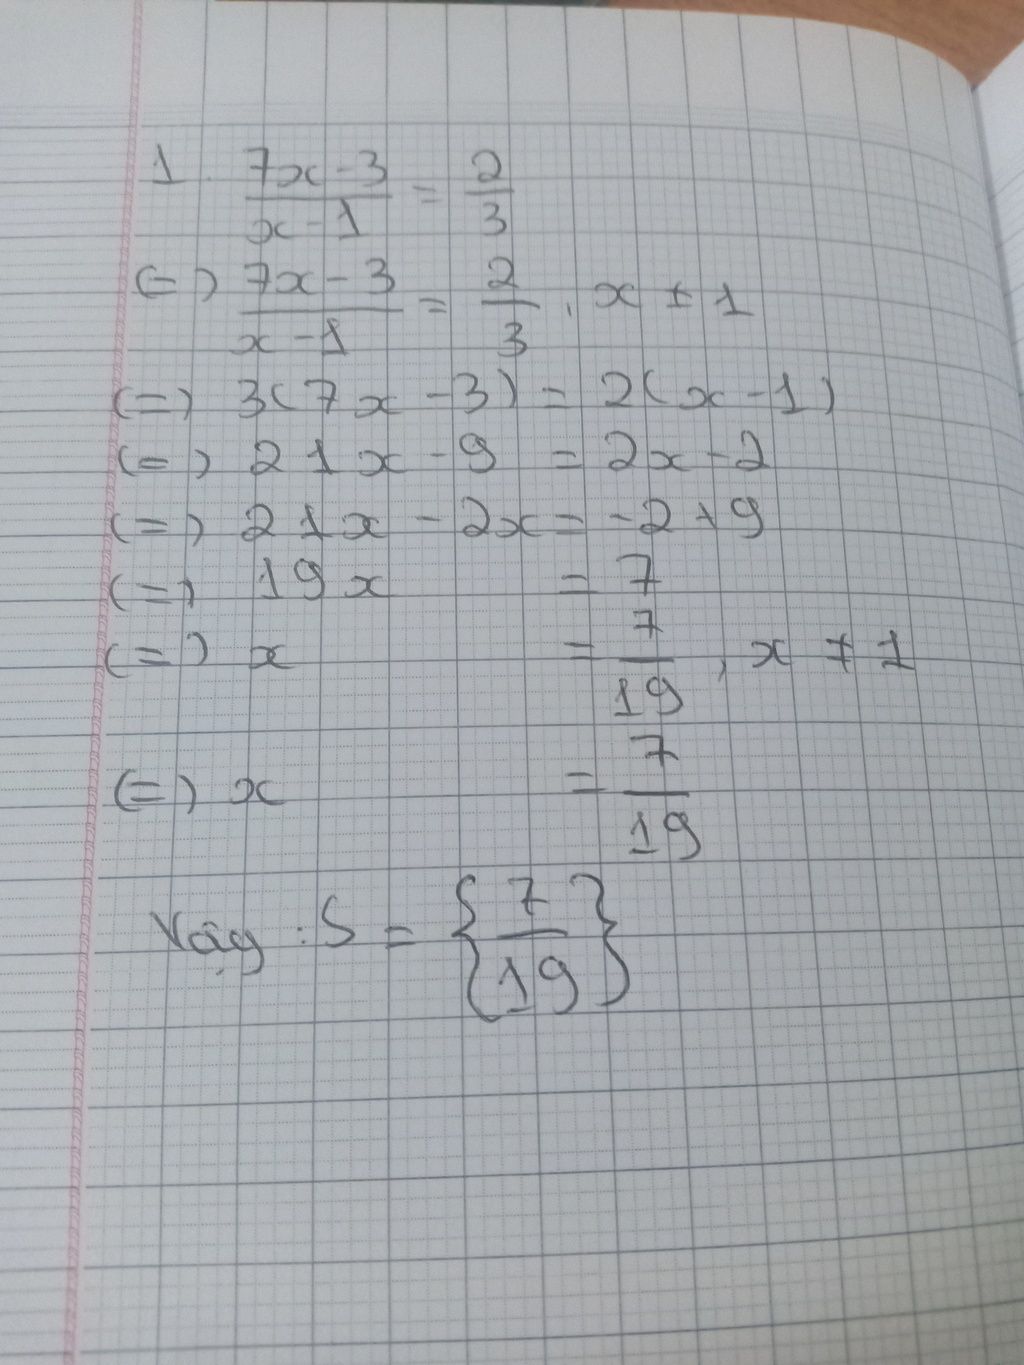 1. (7x - 3)/(x - 1) = 2/3
(=) (7x - 3)/(x - 1) = 2/3 , x ≠ 1
(=) 3(7x - 3) = 2(x - 1)
(=) 21x - 9 = 2x - 2
(=) 21x - 2x = -2 + 9
(=) 19x = 7
(=) x = 7/19 , x ≠ 1
(=) x = 7/19
Vậy : S = {7/19}